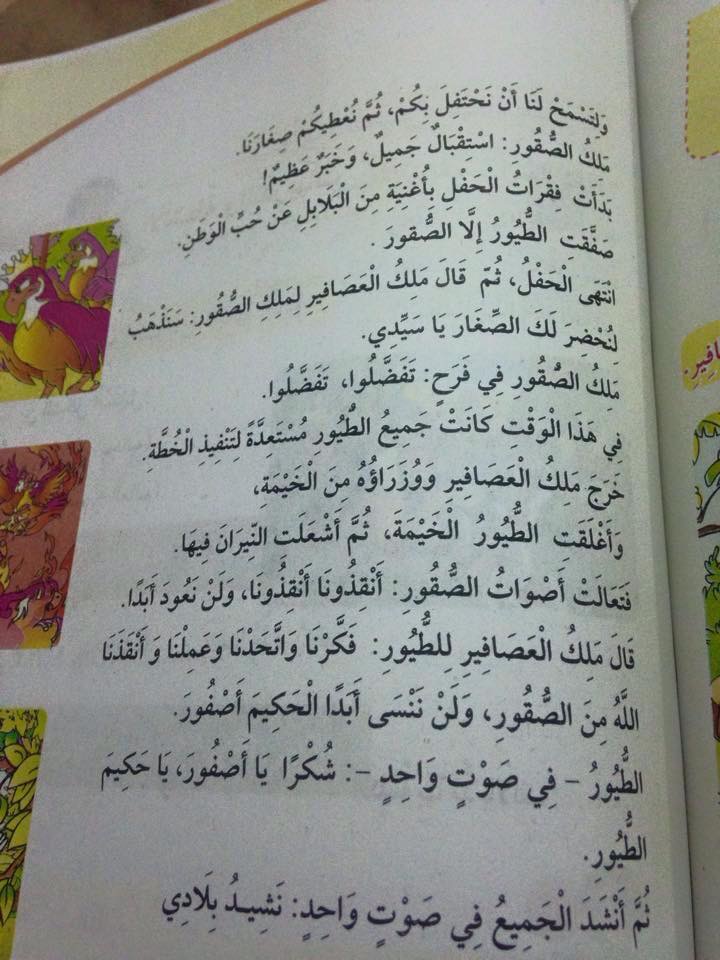 وَلِتَسْمَحْ لَنَا أَنْ نَحْتَفِلَ بِكُمْ، ثُمَّ نُعْطِيكُمْ صِغَارَنَا.
مَلِكُ الصُّقُورِ: اسْتِقْبَالٌ جَمِيلٌ، وَخَبَرٌ عَظِيمٌ!
بَدَأَتْ فِقْرَاتُ الْحَفْلِ بِأُغْنِيَةٍ مِنَ الْبَلَابِلِ عَنْ حُبِّ الْوَطَنِ.
صَفَّقَتِ الطُّيُورُ إِلَّا الصُّقورَ .
انْتَهَى الْحَفْلُ، ثُمّ قَالَ مَلِكُ الْعَصَافِيرِ لِمَلِكِ الصُّقُورِ: سَنَذْهَبُ
لِنُحْضِرَ لَكَ الصِّغَارَ يَا سَيِّدِي.
مَلِكُ الصُّقُورِ فِي فَرَحٍ: تَفَضَّلُوا، تَفَضَّلُوا.
فِي هَذَا الْوَقْتِ كَانَتْ جَمِيعُ الطُّيُورِ مُسْتَعِدَّةً لِتَنْفِيذِ الْخُطَّة.
خَرَجَ مَلِكُ الْعَصَافِيرِ وَوُزَرَاؤُهُ مِنَ الْخَيْمَةِ،
وَأَغْلَقَتِ الطُّيُورُ الْخَيْمَةَ، ثُمَّ أَشْعَلَتِ النِّيرَانَ فِيهَا.
فَتَعَالَتْ أَصْوَاتُ الصُّقُورِ: أَنْقِذُونَا أَنْقِذُونَا، وَلَنْ نَعُودَ أَبَدًا.
قَالَ مَلِكُ الْعَصَافِيرِ لِلطُّيُورِ: فَكَّرْنَا وَاتَّحَدْنَا وَعَمِلْنَا وَ أَنْقَذَنَا
اللَّهُ مِنَ الصُّقُورِ، وَلَنْ نَنْسَى أَبَدًا الْحَكِيمَ أَصْفُورَ.
الطُّيُورُ – فِي صَوْتٍ وَاحِدٍ –: شُكْرًا يَا أَصْفُورَ، يَا حَكِيمَ
الطُّيُورِ.
ثُمَّ أَنْشَدَ الْجَمِيعُ فِي صَوْتٍ وَاحِدٍ: نَشِيدُ بِلَادِي